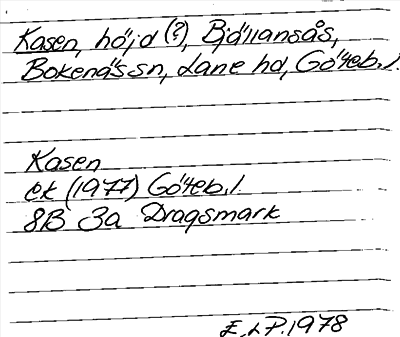 Kasen, höjd (?), Bjällansås,
Bokenäs sn, Lane hd, Göteb. l.
Kasen
ek (1977) Göteb. l.
8B 3a Dragsmark
E. L P. 1978